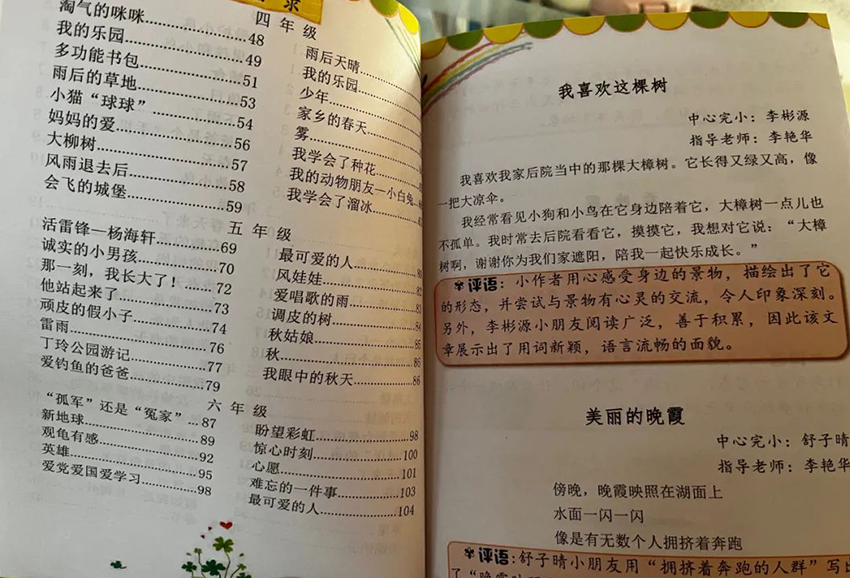 录
淘气的咪咪……48
我的乐园……49
多功能书包……51
雨后的草地……53
小猫“球球”……54
妈妈的爱……56
大柳树……57
风雨退去后……58
会飞的城堡……59
四年级
雨后天晴……
我的乐园……
少年……
家乡的春天……
雾……
我学会了种花……
我的动物朋友—小白兔……
我学会了溜冰……
五年级
活雷锋—杨海轩……69
诚实的小男孩……70
那一刻，我长大了！……72
他站起来了……73
顽皮的假小子……74
雷雨……76
丁玲公园游记……77
爱钓鱼的爸爸……79
最可爱的人……80
风娃娃……81
爱唱歌的雨……83
调皮的树……
秋姑娘……85
秋……86
我眼中的秋天……86
六年级
“孤军”还是“冤家”……87
新地球……89
观龟有感……92
英雄……95
爱党爱国爱学习……98
盼望彩虹……98
惊心时刻……100
心愿……101
难忘的一件事……103
最可爱的人……104
我喜欢这棵树
中心完小：李彬源
指导老师：李艳华
我喜欢我家后院当中的那棵大樟树。它长得又绿又高，像
一把大凉伞。
我经常看见小狗和小鸟在它身边陪着它，大樟树一点儿也
不孤单。我时常去后院看看它，摸摸它，我想对它说：“大樟
树啊，谢谢你为我们家遮阳，陪我一起快乐成长。”
评语：小作者用心感受身边的景物，描绘出了它
的形态，并尝试与景物有心灵的交流，令人印象深刻。
另外，李彬源小朋友阅读广泛，善于积累，因此该文
章展示出了用词新颖，语言流畅的面貌。
美丽的晚霞
中心完小：舒子晴
指导老师：李艳华
傍晚，晚霞映照在湖面上
水面一闪一闪
像是有无数个人拥挤着奔跑
评语：舒子晴小朋友用“拥挤着奔跑的人群”写出
了“晚霞